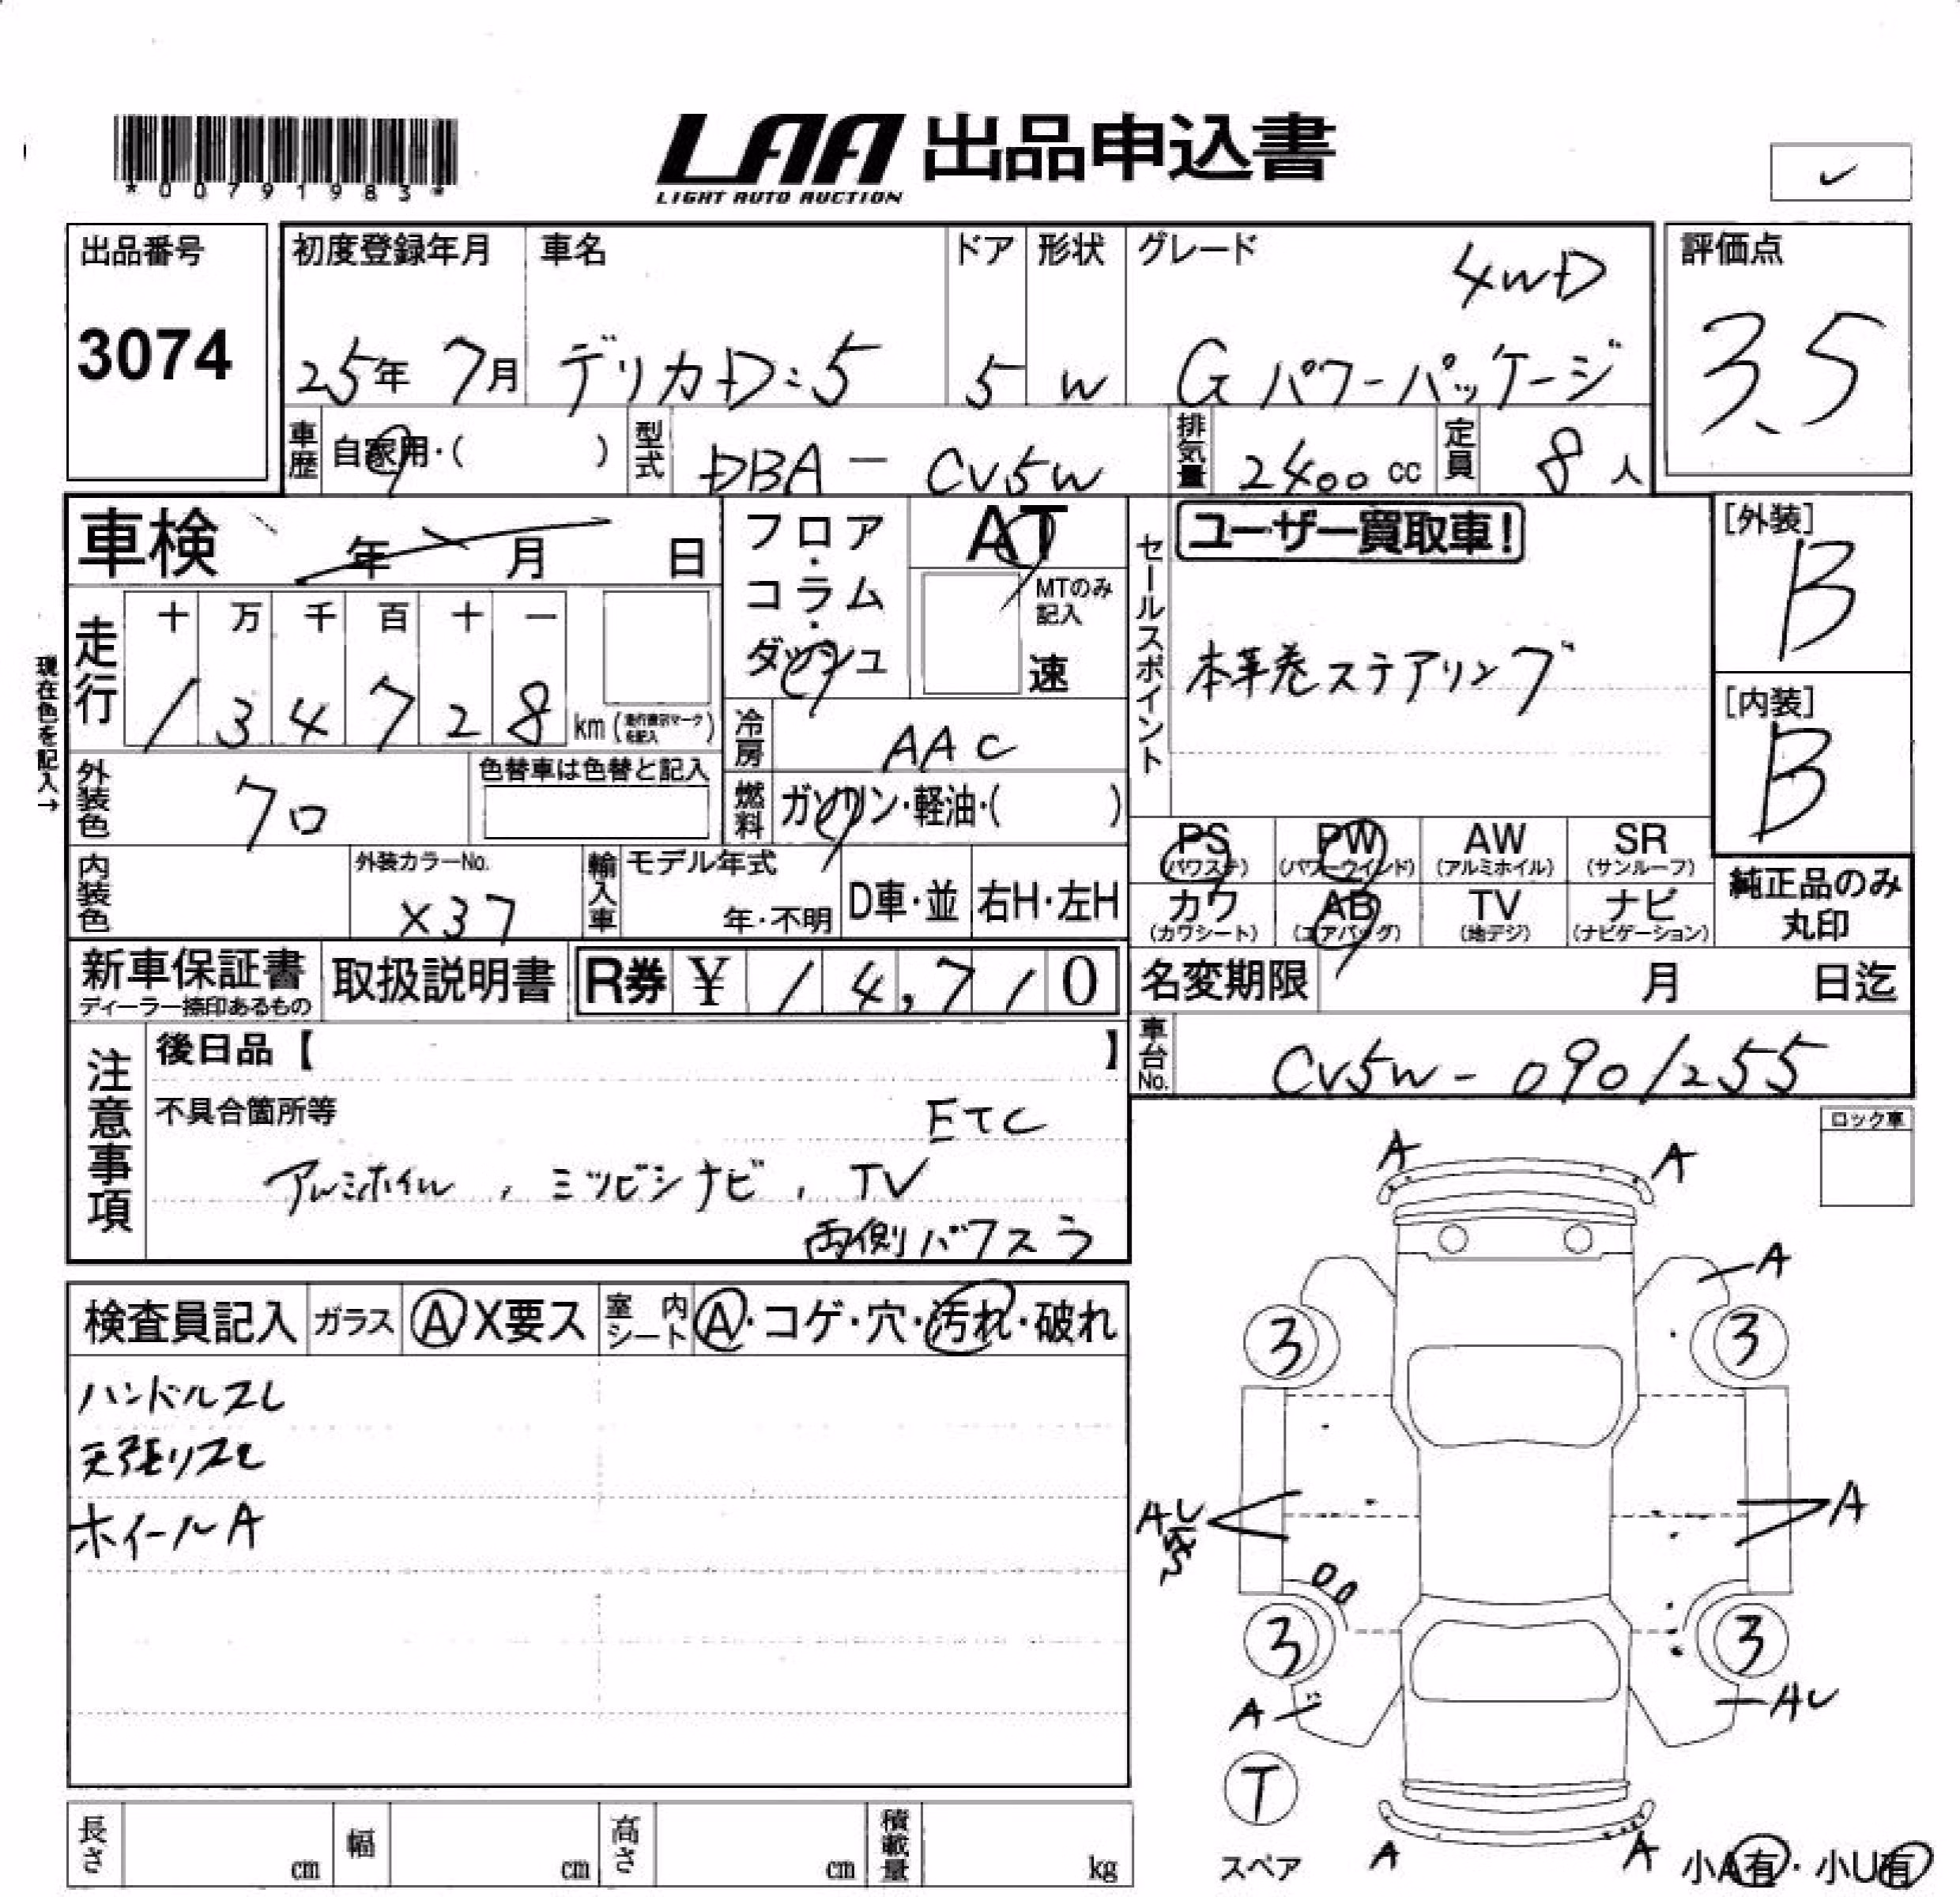 *00791983*
LAA 出品申込書
LIGHT AUTO AUCTION
出品番号
3074
初度登録年月 車名 ドア 形状 グレード
4WD
25年 7月 デリカD:5 5 W Gパワーパッケージ
評価点
3.5
車歴 自家用・( ) 型式 DBA-CV5W 排気量 2400cc 定員 8人
車検 年 月 日
走行 十 万 千 百 十 一
1 3 4 7 2 8 km (走行表示マークを記入)
現在色を記入→
外装色 クロ 色替車は色替と記入
内装色 外装カラーNo. X37
フロア・コラム・ダッシュ
AT
MTのみ記入
速
冷房 AAC
燃料 ガソリン・軽油・( )
輸入車 モデル年式 年・不明 D車・並 右H・左H
セールスポイント
ユーザー買取車!
本革巻ステアリング
[外装]
B
[内装]
B
PS (パワステ) PW (パワーウインド) AW (アルミホイル) SR (サンルーフ)
カワ (カワシート) AB (エアバッグ) TV (地デジ) ナビ (ナビゲーション)
純正品のみ丸印
新車保証書 ディーラー捺印あるもの 取扱説明書 R券 ¥14,710
名変期限 月 日迄
車台No. CV5W-0901255
注意事項
後日品【 】
不具合箇所等
ETC
アルミホイル、ミツビシナビ、TV
両側パワスラ
ロック車
検査員記入 ガラス A X要ス 室内シート A・コゲ・穴・汚れ・破れ
ハンドルスレ
天張リスレ
ホイールA
A A
A
3 3
A
3 3
A
T
スペア
A A
小A有・小U有
長さ cm 幅 cm 高さ cm 積載量 kg